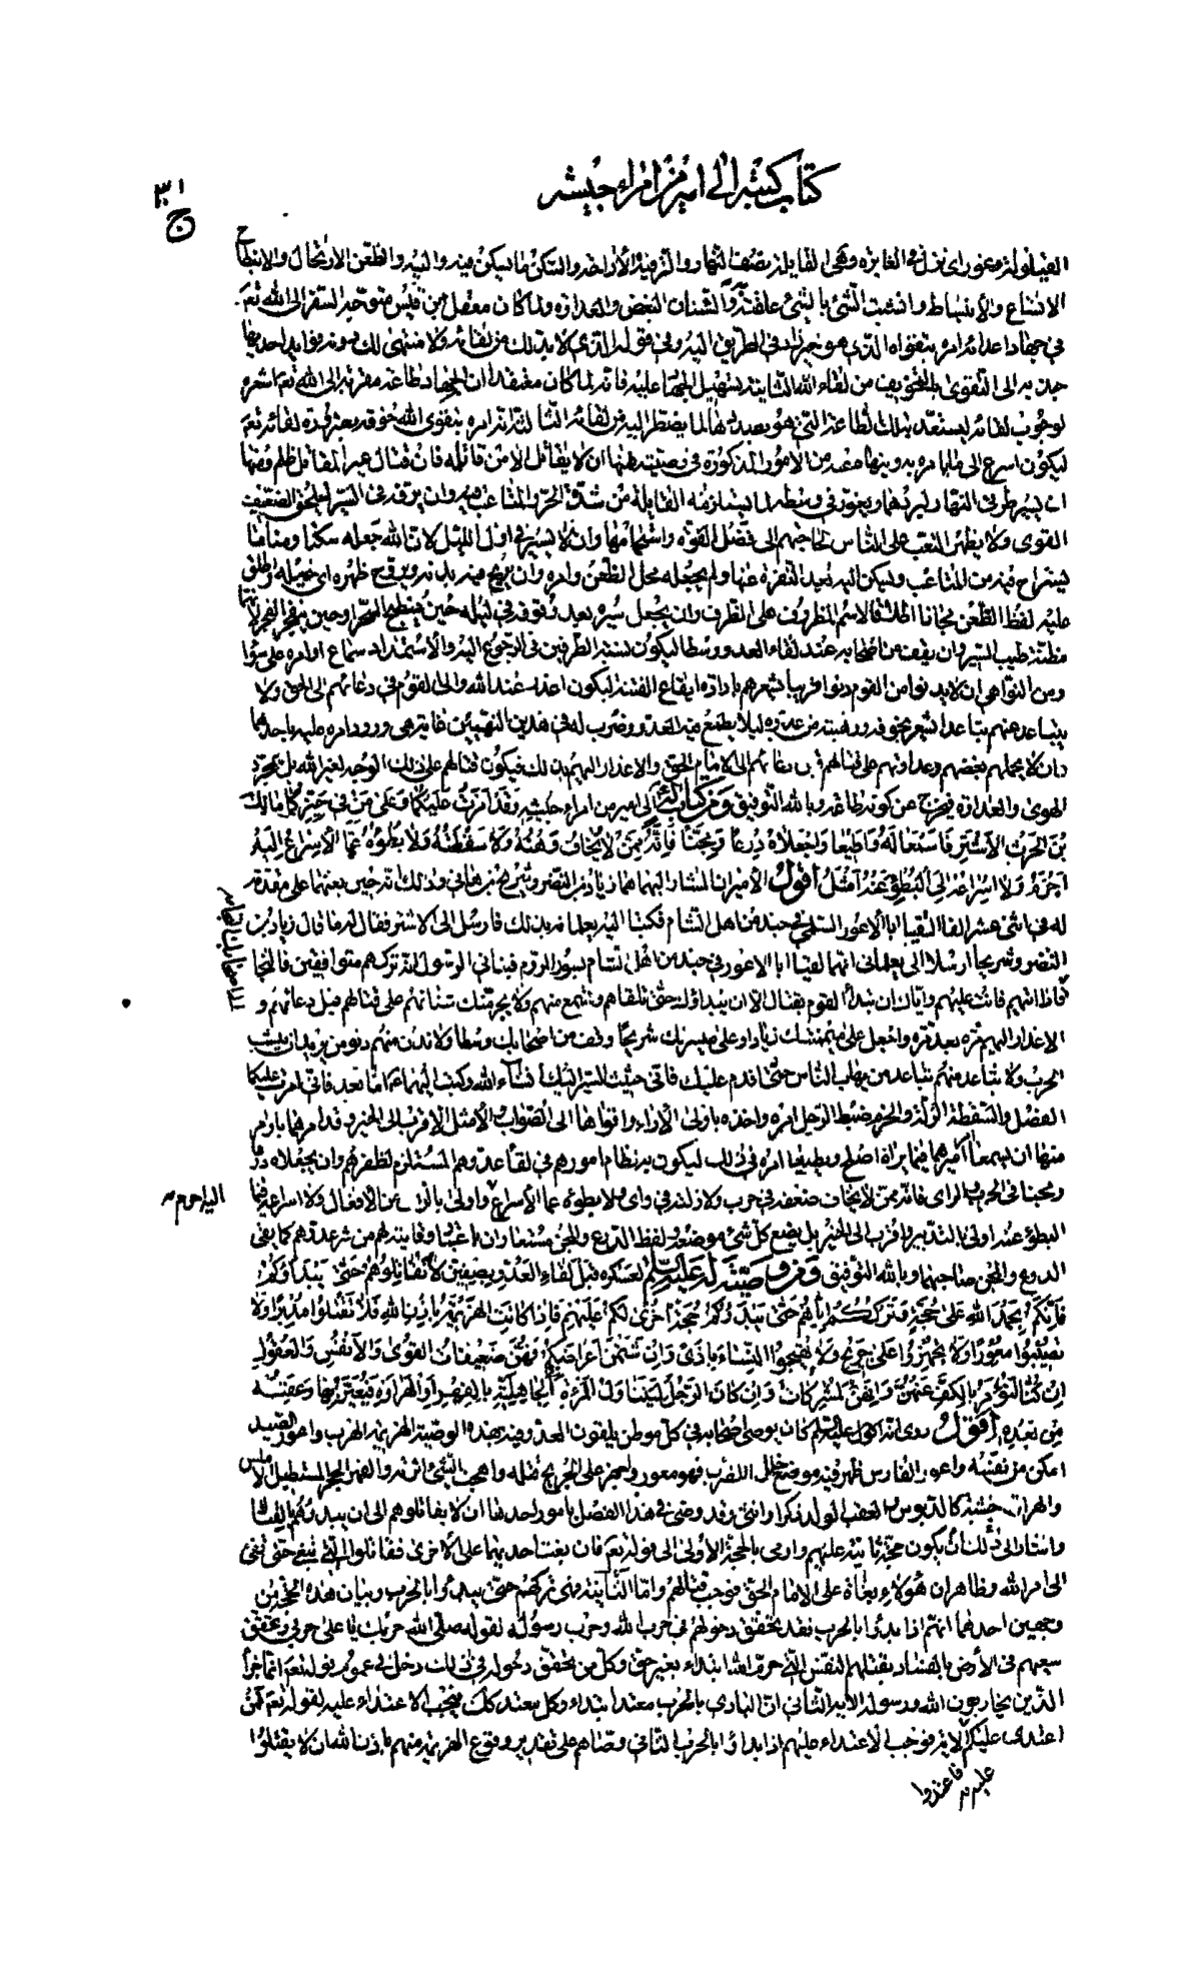 كتاب كتبه الى امير من امراء جيشه
ج ٣
القيلولة وغور اى نزل في الغائرة وهى القايلة نصف النهار والترفيه الأراحة والسكن ما يسكن فيه واليه والظعن الارتحال والانبطاح
الاتساع والانبساط وانشبت الشئ بالشئ علقته به والشنان البغض والعداوة ولما كان معقل بن قيس متوجها لسفر الى الله تع
في جهاد اعدائه امره بتقواه الذى هو خير زاد في الطريق اليه وفى قوله الذى لا بد لك من لقائه ولا منتهى لك دونه فوايد احديها
جذبه الى التقوى بالتخويف من لقاء الله الثانية تسهيل الجهاد عليه فانه لما كان معتقدا ان الجهاد طاعة مقربة الى الله تع اشعره
لوجوب لقائه ليستعد بتلك الطاعة التى هو بصددها لما يضطر اليه من لقائه الثالثة انه امره بتقوى الله خوفه بضرورة لقائه تع
ليكون اسرع الى ما يامره به وينهاه عنه من الأمور المذكورة في وصيته فمنها ان لا يقاتل الا من قاتله فان قتال غير المقاتل ظلم ومنها
ان يسير طرفى النهار لبردهما ويغور في وسطه لما يستلزمه القايلة من شدة الحر والمتاعب فيه وان يرفه في السير ليلحق الضعيف
القوى ولا يظهر التعب على الناس لحاجتهم الى فضل القوة واستجمامها وان لا يسير في اول الليل لان الله جعله سكنا ومناما
يستراح فيه من المتاعب وليسكن اليه بعد النفرة عنها ولم يجعله محل الظعن وامره وان يريح فيه بدنه ويروح ظهره اى خيله واطلق
عليه لفظ الظعن مجازا اطلاقا لاسم المظروف على الظرف وان يجعل سيره بعد وقوفه في ليله حين ينبطح السحر او حين ينفجر الفجر لانهما
مظنة طيب السير وان يقف من اصحابه عند لقاء العدو وسطا ليكون نسبة الطرفين في الرجوع اليه والاستمداد سماع اوامره على سواء
ومن النواهى ان لا يدنوا من القوم دنوا قريبا يشعرهم بارادة ايقاع الفتنة ليكون اعذر عند الله والى القوم في دعائهم الى الحق ولا
يتباعد عنهم تباعدا يشعر بخوفه ورهبته من عدوه ليلا يطمع فيه العدو وضرب له في هذين النهيين غاية هى ورود امره عليه باحدهما
وان لا يحملهم بغضهم وعداوتهم على قتالهم قبل دعائهم الى الامام الحق والاعذار اليهم بذلك فيكون قتالهم على ذلك الوجه لغير الله بل بمجرد
الهوى والعداوة فيخرج عن كونه طاعة وبالله التوفيق ومن كتاب له الى اميرين من امراء جيشه وقد امرت عليكما وعلى من في حيزكما مالك
بن الحرث الأشتر فاسمعا له واطيعا واجعلاه درعا ومجنا فانه ممن لا يخاف وهنه ولا سقطته ولا بطؤه عما الاسراع اليه
احزم ولا اسراعه الى ما البطؤ عنه امثل اقول الأميران المشار اليهما هما زياد بن النضر وشريح بن هانى وذلك انه حين بعثهما على مقدمة
له في اثنى عشر الفا التقيا ابا الأعور السلمى في جند من اهل الشام فكتبا اليه يعلمانه بذلك فارسل الى الاشتر فقال له ما قال زياد بن
النضر وشريحا ارسلا الى يعلمانى انهما لقيا ابا الاعور في جند من اهل الشام بسور الروم فنبانى الرسول انه تركهم متوافقين فالنجا
فاذا اتيتهم فانت عليهم واياك ان تبدأ القوم بقتال الا ان يبداؤك حتى تلقاهم وتسمع منهم ولا يجرمنك شنانهم على قتالهم قبل دعائهم و
الاعذار اليهم مرة بعد مرة واجعل على ميمنتك زيادا وعلى ميسرتك شريحا وقف من اصحابك وسطا ولا تدن منهم دنو من يريد ان ينشب
الحرب ولا تباعد منهم تباعد من يهاب الناس حتى اقدم عليك فانى حثيث السير اليك انشاء الله وكتب اليهما اما بعد فانى امرت عليكما
الفصل والسقطة الزلة والحزم ضبط الرجل امره واخذه باولى الأراء واقواها الى الصواب والأمثل الاقرب الى الخير وقد امرهما باوامر
منها ان يسمعا اميرهما فيما يراه اصلح ويطيعا امره في ذلك ليكون به نظام امورهم في لقاء عدوهم المستلزم لظفرهم وان يجعلاه درعا
ومجنا في الحرب والراى فانه ممن لا يخاف ضعفه في حرب ولا زلته في راى ولا بطؤه عما الأسراع اولى بالراى من الأفعال ولا اسراعه فيما
البطؤ عنه اولى بالتدبير واقرب الى الخير بل يضع كل شئ موضعه ولفظ الدرع والمجن مستعاران باعتبار وقايته لهم من شر عدوهم كما يقى
الدرع والمجن صاحبهما وبالله التوفيق ومن وصيته له عليه السلم لعسكره قبل لقاء العدو بصفين لا تقاتلوهم حتى يبداؤكم
فانكم بحمد الله على حجة وترككم اياهم حتى يبدؤكم حجة اخرى لكم عليهم فاذا كانت الهزيمة باذن الله فلا تقتلوا مدبرا ولا
تصيبوا معورا ولا تجهزوا على جريح ولا تهيجوا النساء باذى وان شتمن اعراضكم فانهن ضعيفات القوى والأنفس والعقول
ان كنا لنؤمر بالكف عنهن وانهن لمشركات وان كان الرجل ليتناول المرءة في الجاهلية بالفهر او الهراوة فيعير بها وعقبه
من بعده اقول روى انه عليه السلم كان يوصى اصحابه في كل موطن يلقون العدو فيه بهذه الوصية الهزيمة الهرب واعور الصيد
امكن من نفسه واعور الفارس ظهر فيه موضع خلل للضرب فهو معور واجهز على الجريح قتله واهجت الشئ اثرته والفهر الحجر المستطيل الأملس
والهراوة خشبة كالدبوس والعقب الولد ذكرا وانثى وقد وصى في هذا الفصل بامور احدها ان لا يقاتلوهم الى ان يبدؤكم بالقتال
واشار الى ذلك ان يكون حجة ثانية عليهم واومى بالحجة الأولى الى قوله تع فان بغت احديهما على الأخرى فقاتلوا التى تبغى حتى تفئ
الى امر الله وظاهر ان هؤلاء بغاة على الامام الحق فوجب قتالهم واما الثانية فهى تركهم حتى يبدؤا بالحرب وبيان هذه الحجة من
وجهين احدهما انهم اذا بدؤا بالحرب فقد تحقق دخولهم في حرب الله وحرب رسوله لقوله صلى الله حربك يا على حربى وتحقق
سعيهم في الأرض بالفساد بقتلهم النفس التى حرم الله ابتداء بغير حق وكل من تحقق دخوله في ذلك دخل في عموم قوله تع انما جزاء
الذين يحاربون الله ورسوله الأية الثانى ان البادى بالحرب معتد ابتداء وكل معتد كك فيجب الاعتداء عليه لقوله تع فمن
اعتدى عليكم الاية فوجب الاعتداء عليهم اذا بداؤا بالحرب الثانى وصاهم على تقدير وقوع الهزيمة منهم باذن الله ان لا يقتلوا
فاعتدوا
عليه